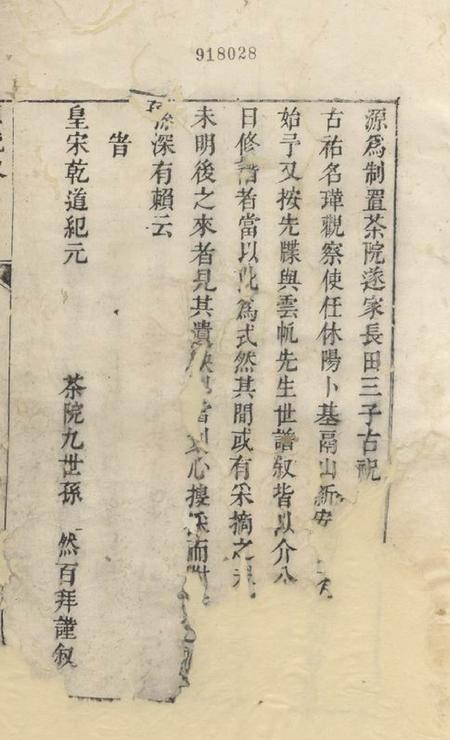 918028
源爲制置茶院遂家長田三子古祝
古祐名瑋觀察使任休陽卜基鬲山新安
始予又按先牒與雲帆先生世譜叙皆以介
日修譜者當以此爲式然其間或有采摘之
未明後之來者見其遺 心搜采而
深有賴云
旹
皇宋乾道紀元
茶院九世孫 然百拜謹叙